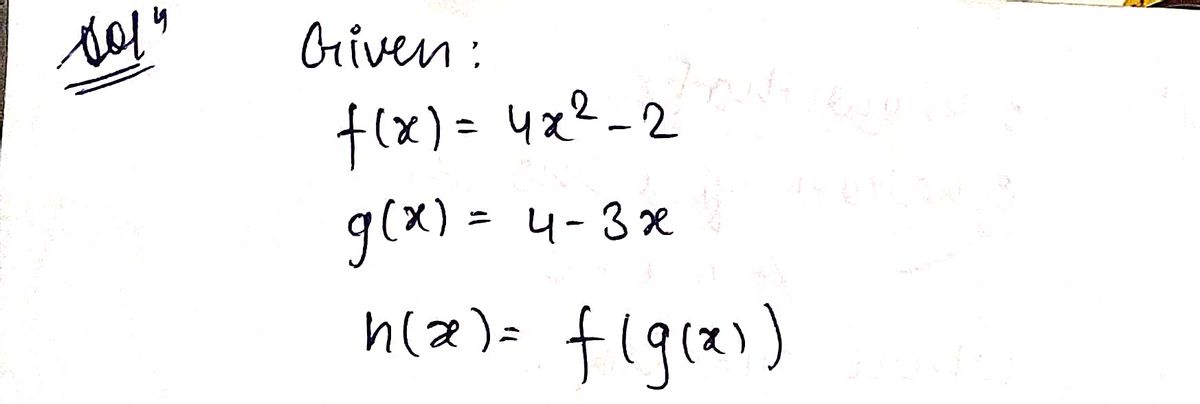 Solⁿ Given:
f(x) = 4x² - 2
g(x) = 4 - 3x
h(x) = f(g(x))